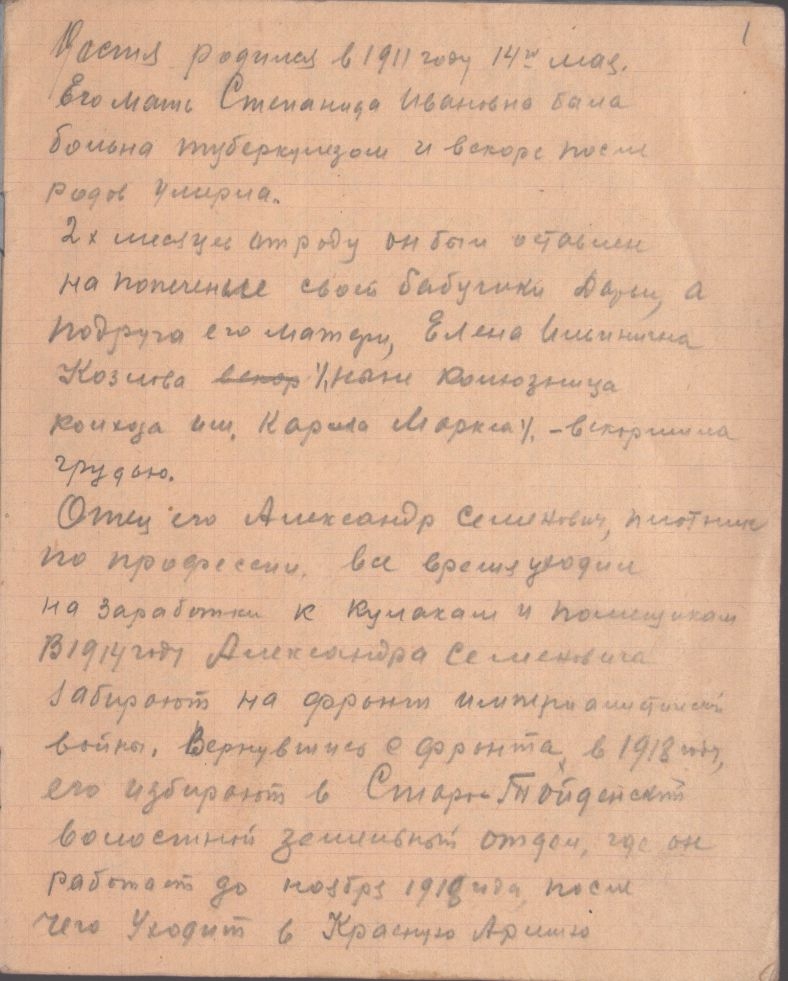 1
Костя родился в 1911 году 14го мая.
Его мать Степанида Ивановна была
больна туберкулезом и вскоре после
родов умерла.
2х месяцев отроду он был оставлен
на попеченье своей бабушки Дарьи, а
подруга его матери, Елена Ильинична
Козлова вскор /, ныне колхозница
колхоза им. Карла Маркса/, - вскормила
грудью.
Отец его Александр Семенович, плотник
по профессии, все время уходил
на заработки к кулакам и помещикам
В 1914 году Александра Семеновича
забирают на фронт империалистической
войны. Вернувшись с фронта в 1918 году,
его избирают в Старо-Тойденский
волостной земельный отдел, где он
работает до ноября 1918 года, после
чего уходит в Красную Армию